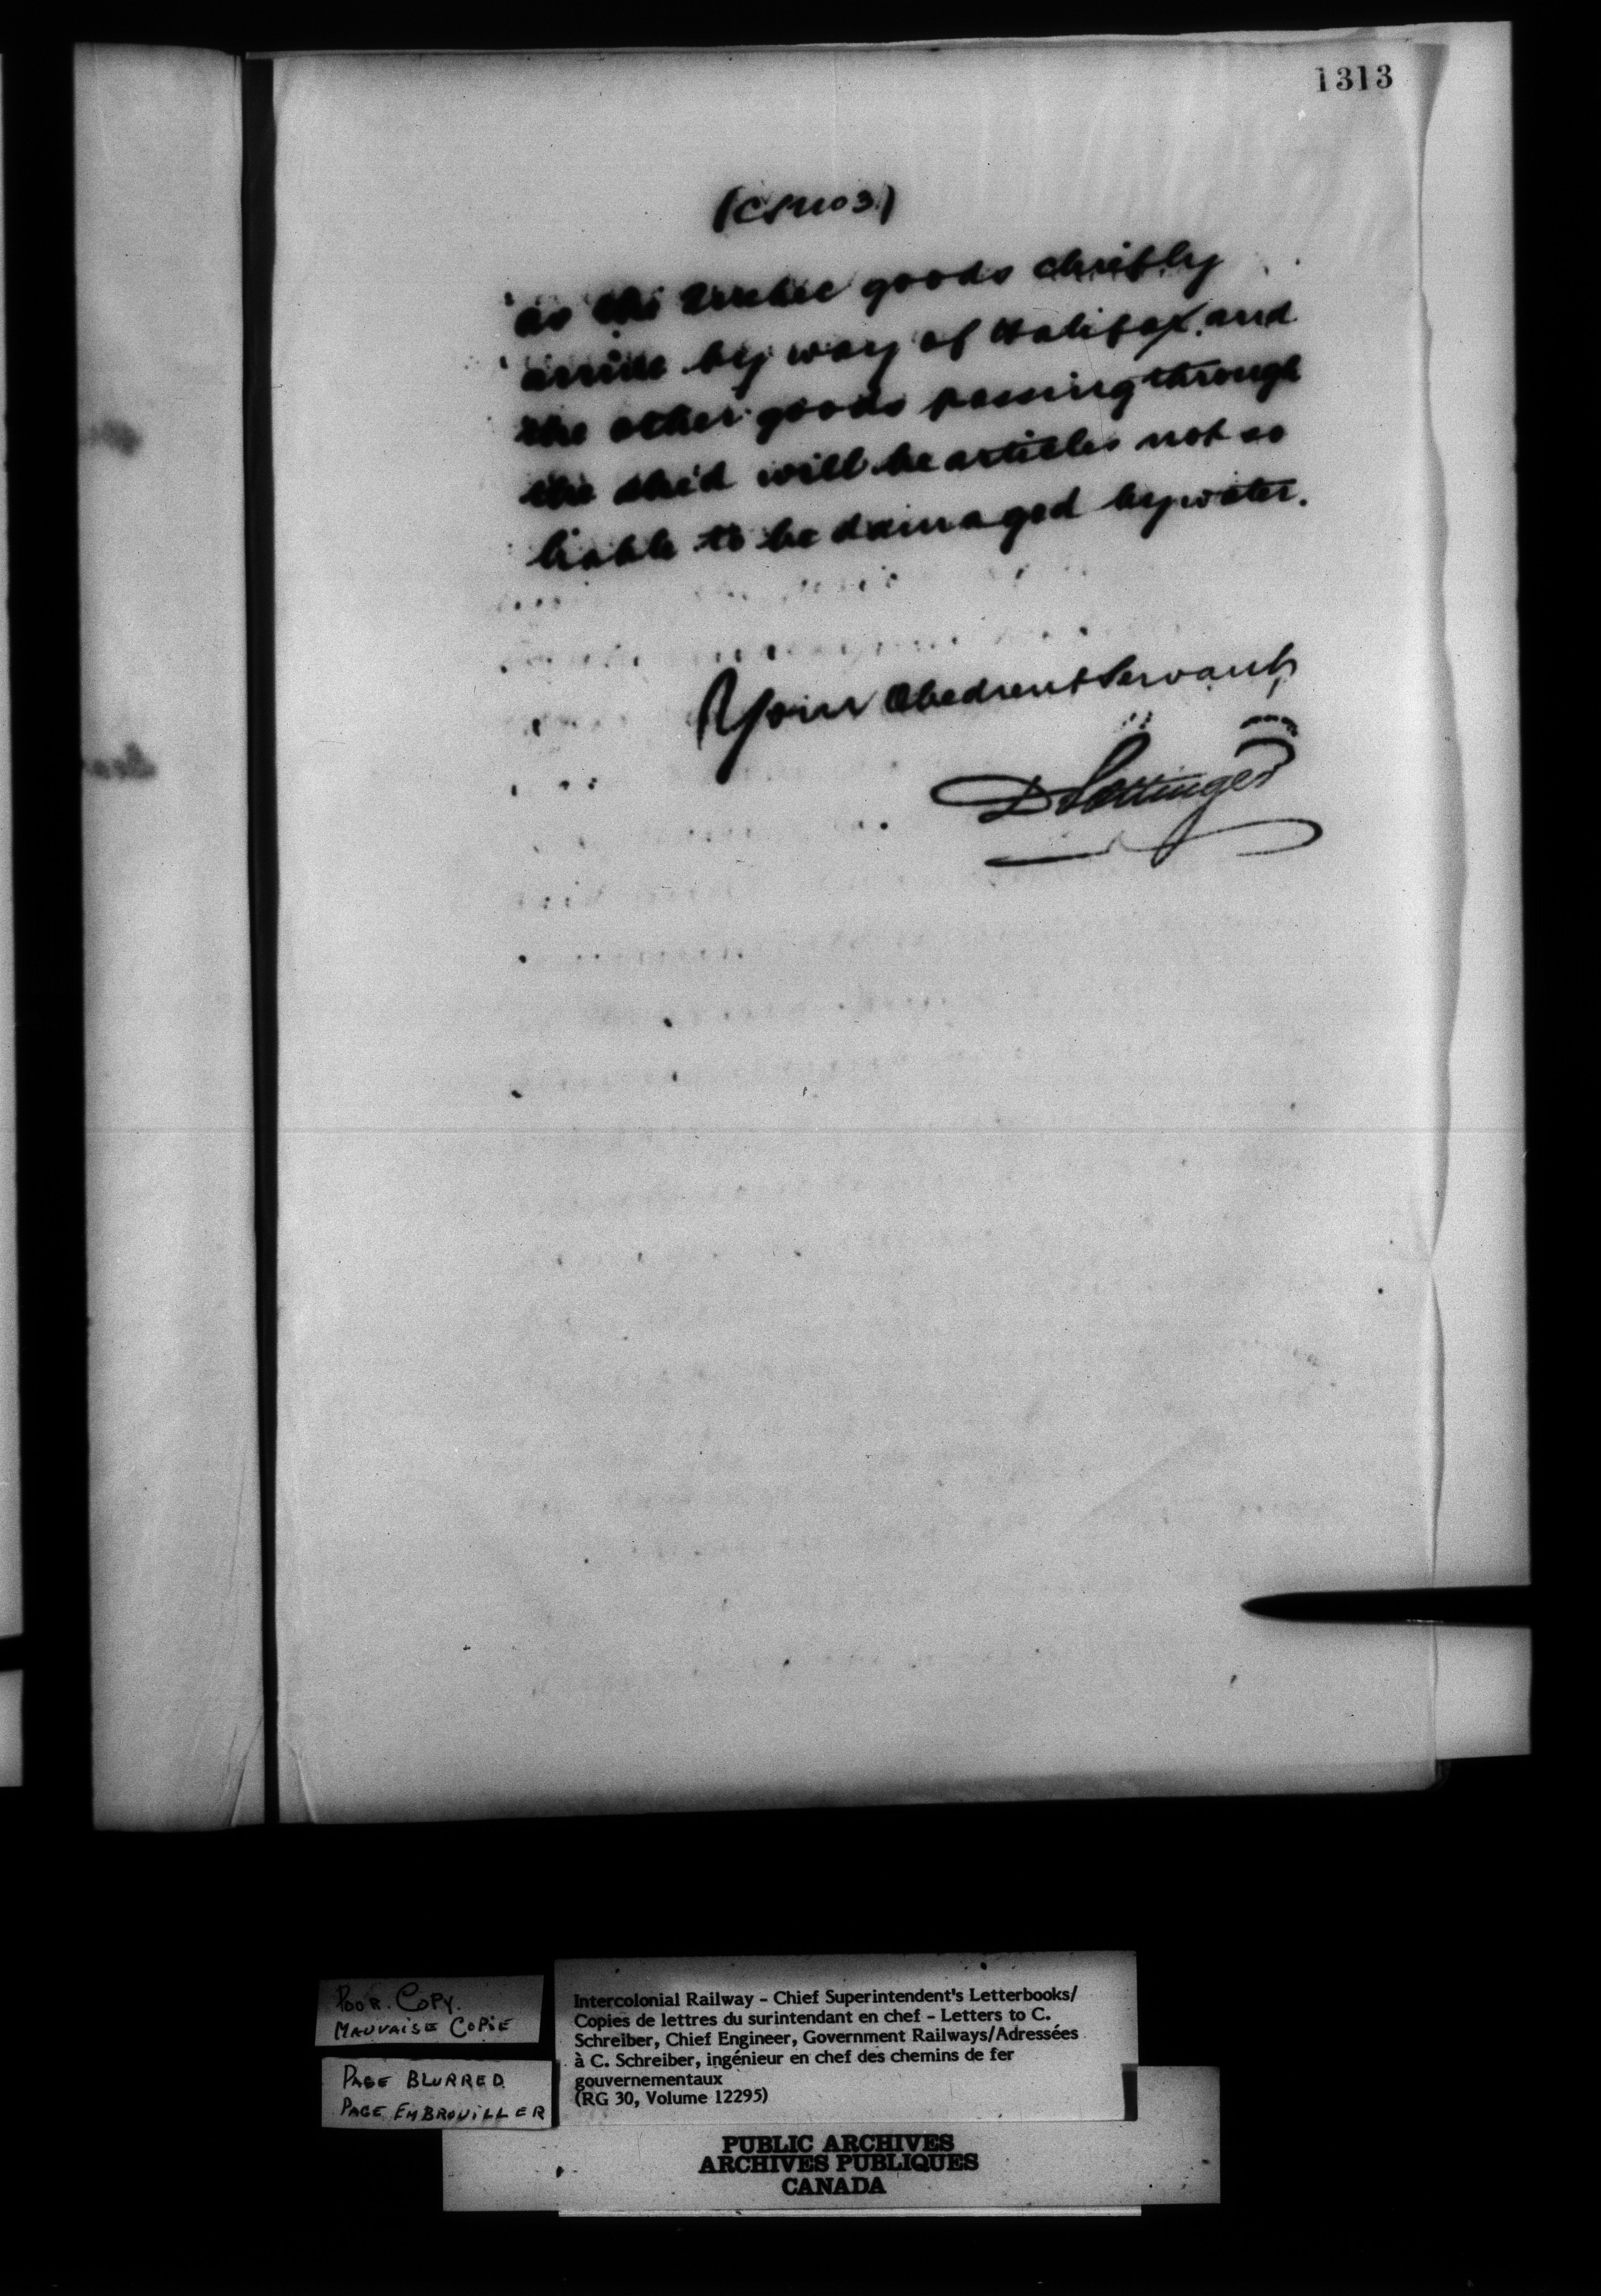 1313
(CS no 3)
as the goods chiefly
arrive by way of Halifax, and
the other goods passing through
the shed will be articles not so
liable to be damaged by water.
Your Obedient Servant,
D Pottinger
POOR COPY.
MAUVAISE COPIE
PAGE BLURRED
PAGE EMBROUILLER
Intercolonial Railway – Chief Superintendent's Letterbooks/
Copies de lettres du surintendant en chef – Letters to C.
Schreiber, Chief Engineer, Government Railways/Adressées
à C. Schreiber, ingénieur en chef des chemins de fer
gouvernementaux
(RG 30, Volume 12295)
PUBLIC ARCHIVES
ARCHIVES PUBLIQUES
CANADA